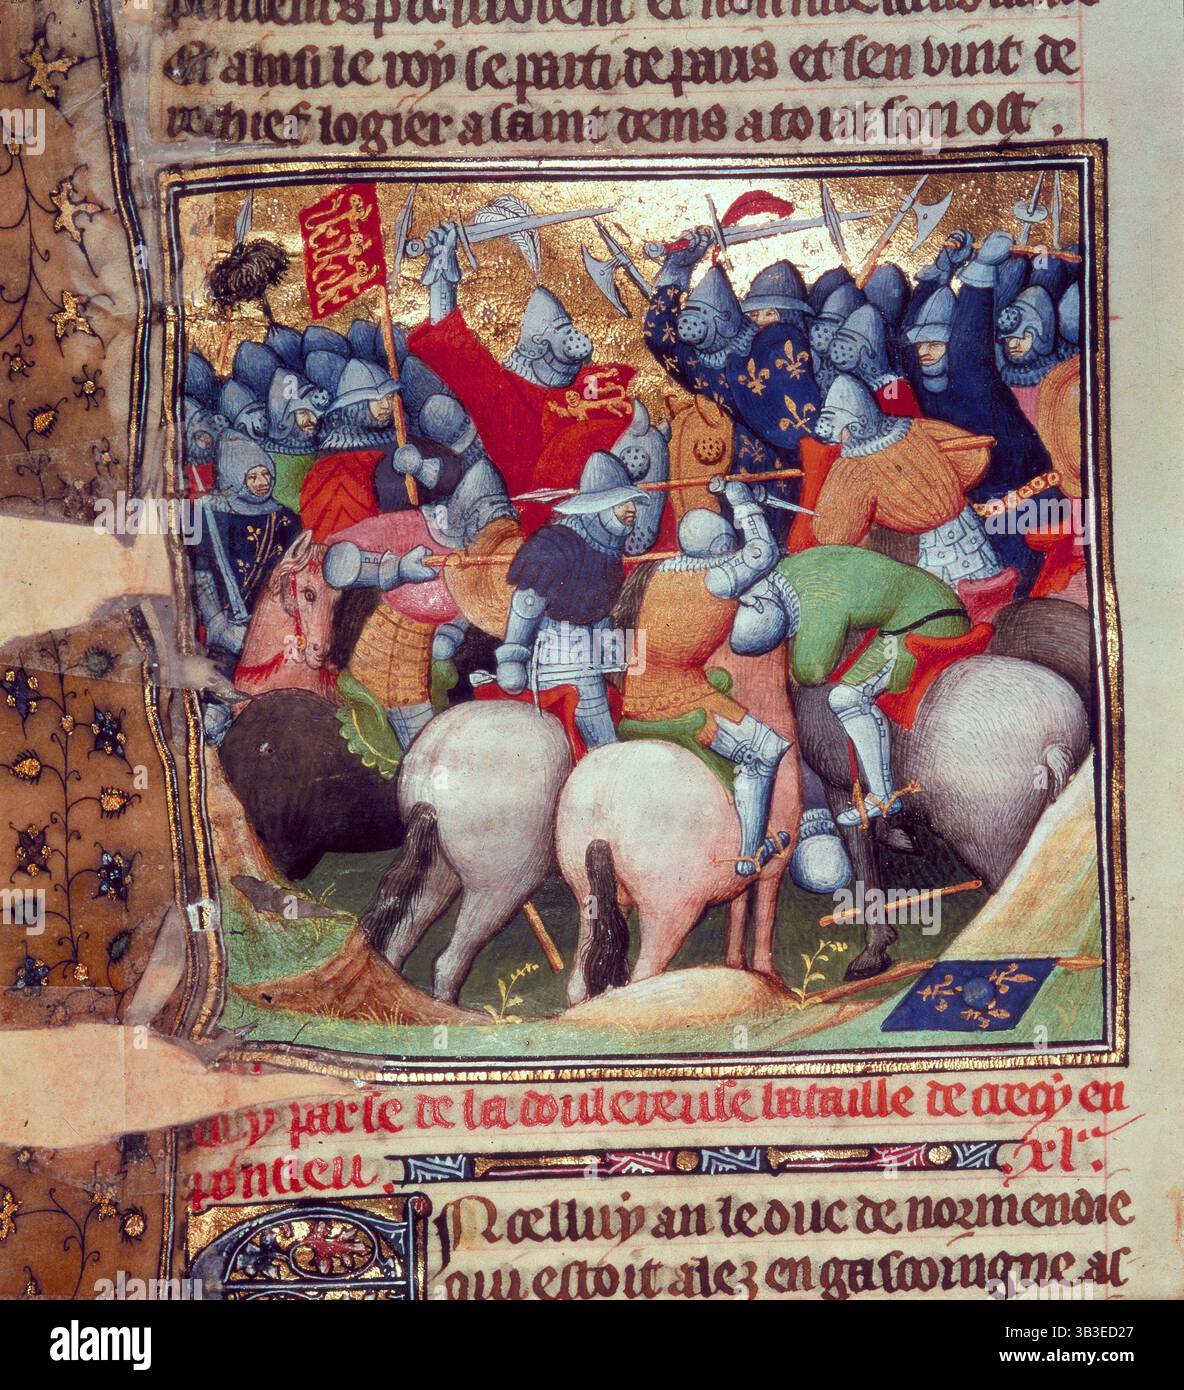 et ainsi le roy se parti de paris et sen vint de
rechief logier a saint denis a tout son ost.
cy parle de la doulereuse bataille de crecy en
pontieu. .xl.
En celluy an le duc de normendie
qui estoit alez en gascoingne ac
a
alamy
Image ID: 3B3ED27
www.alamy.com